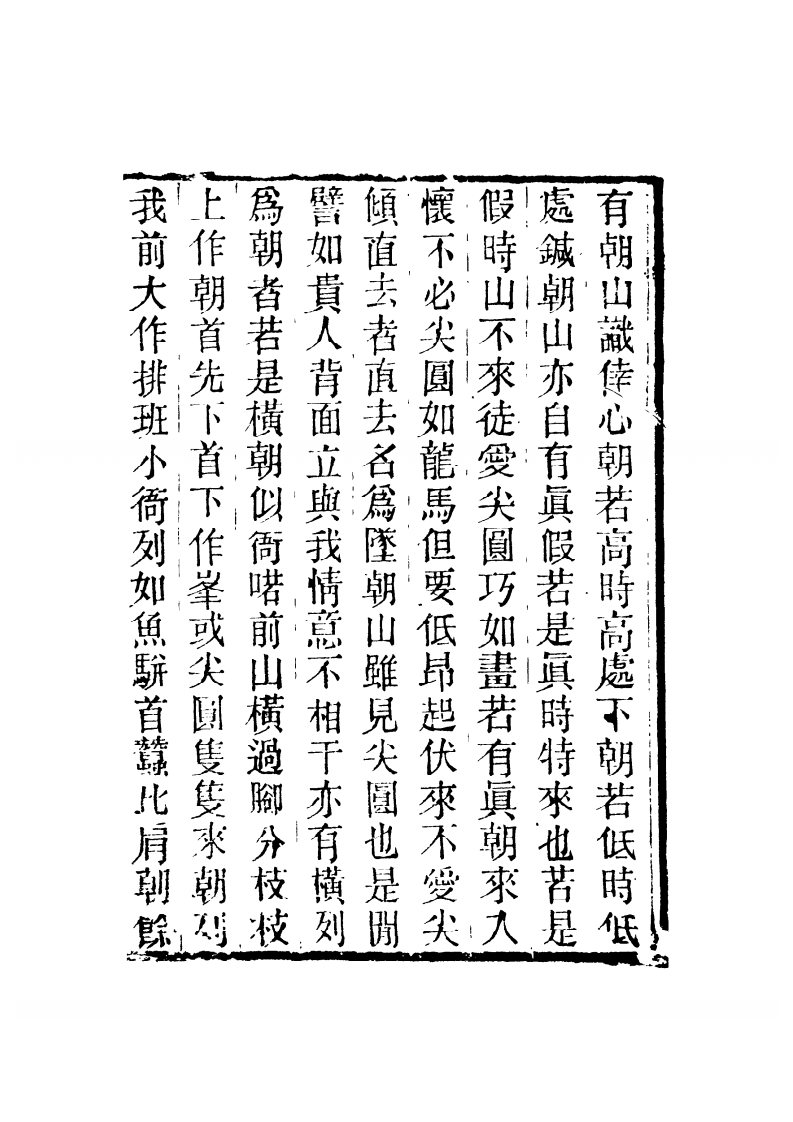 有朝山識倖心朝若高時高處下朝若低時低
處鍼朝山亦自有眞假若是眞時特來也若是
假時山不來徒愛尖圓巧如畫若有眞朝來入
懷不必尖圓如龍馬但要低昂起伏來不愛尖
傾直去者直去名爲墜朝山雖見尖圓也是閒
譬如貴人背面立與我情意不相干亦有橫列
爲朝者若是橫朝似衙喏前山橫過腳分枝枝
上作朝首先下首下作峯或尖圓隻隻來朝列
我前大作排班小衙列如魚駢首蠶比肩朝餘